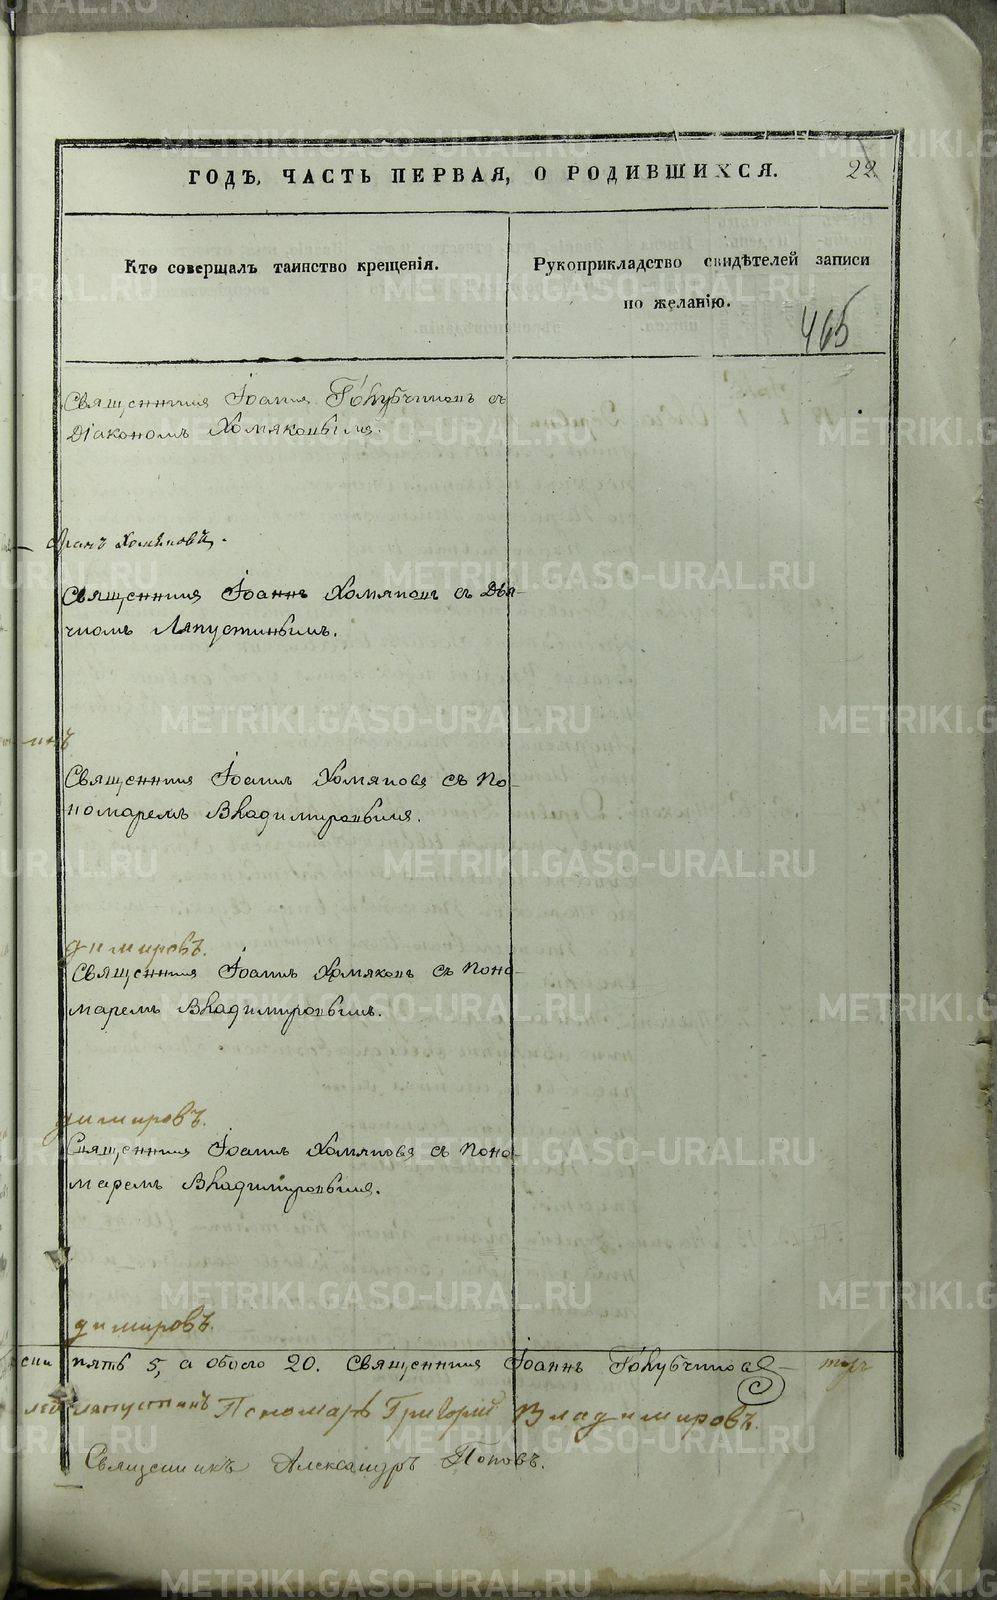 ГОДЪ, ЧАСТЬ ПЕРВАЯ, О РОДИВШИХСЯ.
22
Кто совершалъ таинство крещенія.
Рукоприкладство свидѣтелей записи
по желанію.
465
Священникъ Іоаннъ Голубчиковъ съ
Діакономъ Хомяковымъ.
Іоаннъ Хомяковъ.
Священникъ Іоаннъ Хомяковъ съ Дья-
чкомъ Ляпустинымъ.
Священникъ Іоаннъ Хомяковъ съ По-
номаремъ Владимировымъ.
димировъ.
Священникъ Іоаннъ Хомяковъ съ Поно-
маремъ Владимировымъ.
димировъ.
Священникъ Іоаннъ Хомяковъ съ Поно-
маремъ Владимировымъ.
димировъ.
пять 5, а обоего 20. Священникъ Іоаннъ Голубчиковъ
Ляпустинъ Пономарь Григорий Владимировъ.
Священникъ Александръ Поповъ.
METRIKI.GASO-URAL.RU